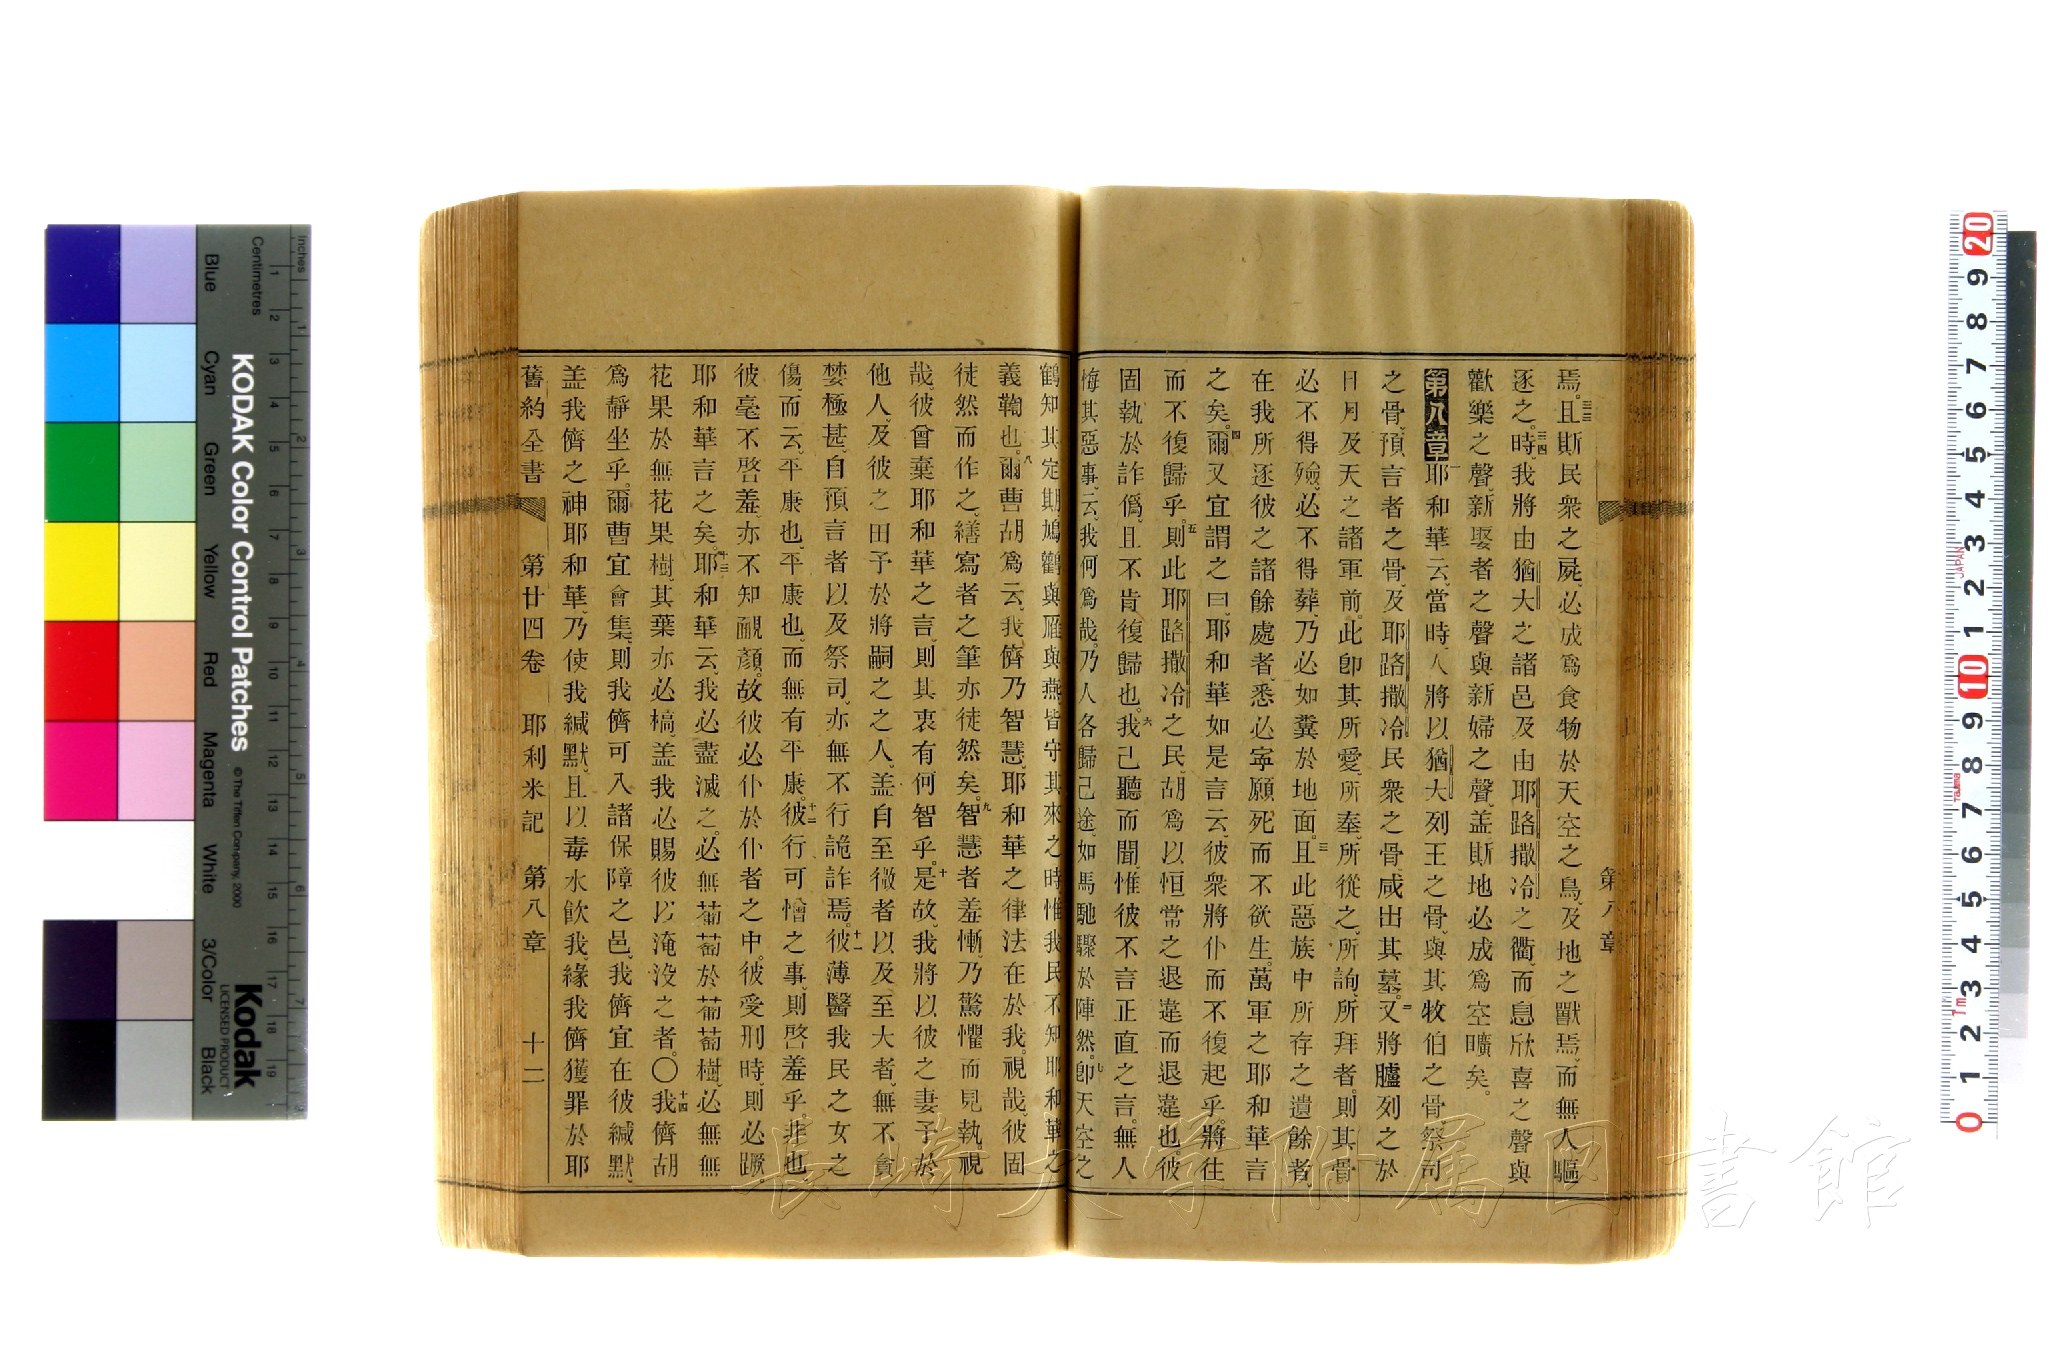 焉。三三且斯民衆之屍、必成爲食物於天空之鳥、及地之獸焉、而無人驅
逐之。三四時、我將由猶大之諸邑及由耶路撒冷之衢、而息欣喜之聲與
歡樂之聲、新娶者之聲與新婦之聲、盖斯地必成爲空曠矣。
第八章一耶和華云、當時、人將以猶大列王之骨、與其牧伯之骨、祭司
之骨、預言者之骨、及耶路撒冷民衆之骨、咸出其墓。二又將臚列之於
日月及天之諸軍前。此卽其所愛、所奉、所從之、所詢、所拜者、則其骨
必不得殮、必不得葬、乃必如糞於地面。三且此惡族中所存之遺餘者、
在我所逐彼之諸餘處者、悉必寧願死而不欲生。萬軍之耶和華言
之矣。四爾又宜謂之曰、耶和華如是言云、彼衆將仆而不復起乎。將往
而不復歸乎。五則此耶路撒冷之民、胡爲以恒常之退違而退違也。彼
固執於詐僞、且不肯復歸也。六我已聽而聞、惟彼不言正直之言。無人
悔其惡事、云、我何爲哉。乃人各歸己途、如馬馳驟於陣然。七卽天空之
鶴知其定期、鳩鸛與雁與燕、皆守其來之時、惟我民不知耶和華之
義鞫也。八爾曹胡爲云、我儕乃智慧、耶和華之律法在於我。視哉、彼固
徒然而作之、繕寫者之筆亦徒然矣。九智慧者羞慚、乃驚懼而見執。視
哉、彼曾棄耶和華之言、則其衷有何智乎。十是故、我將以彼之妻予於
他人、及彼之田予於將嗣之之人、盖自至微者以及至大者、無不貪
婪極甚、自預言者以及祭司、亦無不行詭詐焉。十一彼薄醫我民之女之
傷、而云、平康也、平康也、而無有平康。十二彼行可憎之事、則啓羞乎。非也、
彼毫不啓羞、亦不知靦顏。故彼必仆於仆者之中。彼受刑時、則必蹶、
耶和華言之矣。十三耶和華云、我必盡滅之。必無葡萄於葡萄樹、必無無
花果於無花果樹、其葉亦必槁、盖我必賜彼以淹沒之者。〇十四我儕胡
爲靜坐乎。爾曹宜會集、則我儕可入諸保障之邑、我儕宜在彼緘默、
盖我儕之神耶和華、乃使我緘默、且以毒水飮我、緣我儕獲罪於耶
舊約全書　第廿四卷　耶利米記　第八章　十二
第八章
長崎大学附属図書館
KODAK Color Control Patches
© The Tiffen Company, 2000
Kodak
LICENSED PRODUCT
Inches
Centimetres
Blue
Cyan
Green
Yellow
Red
Magenta
White
3/Color
Black
JAPAN